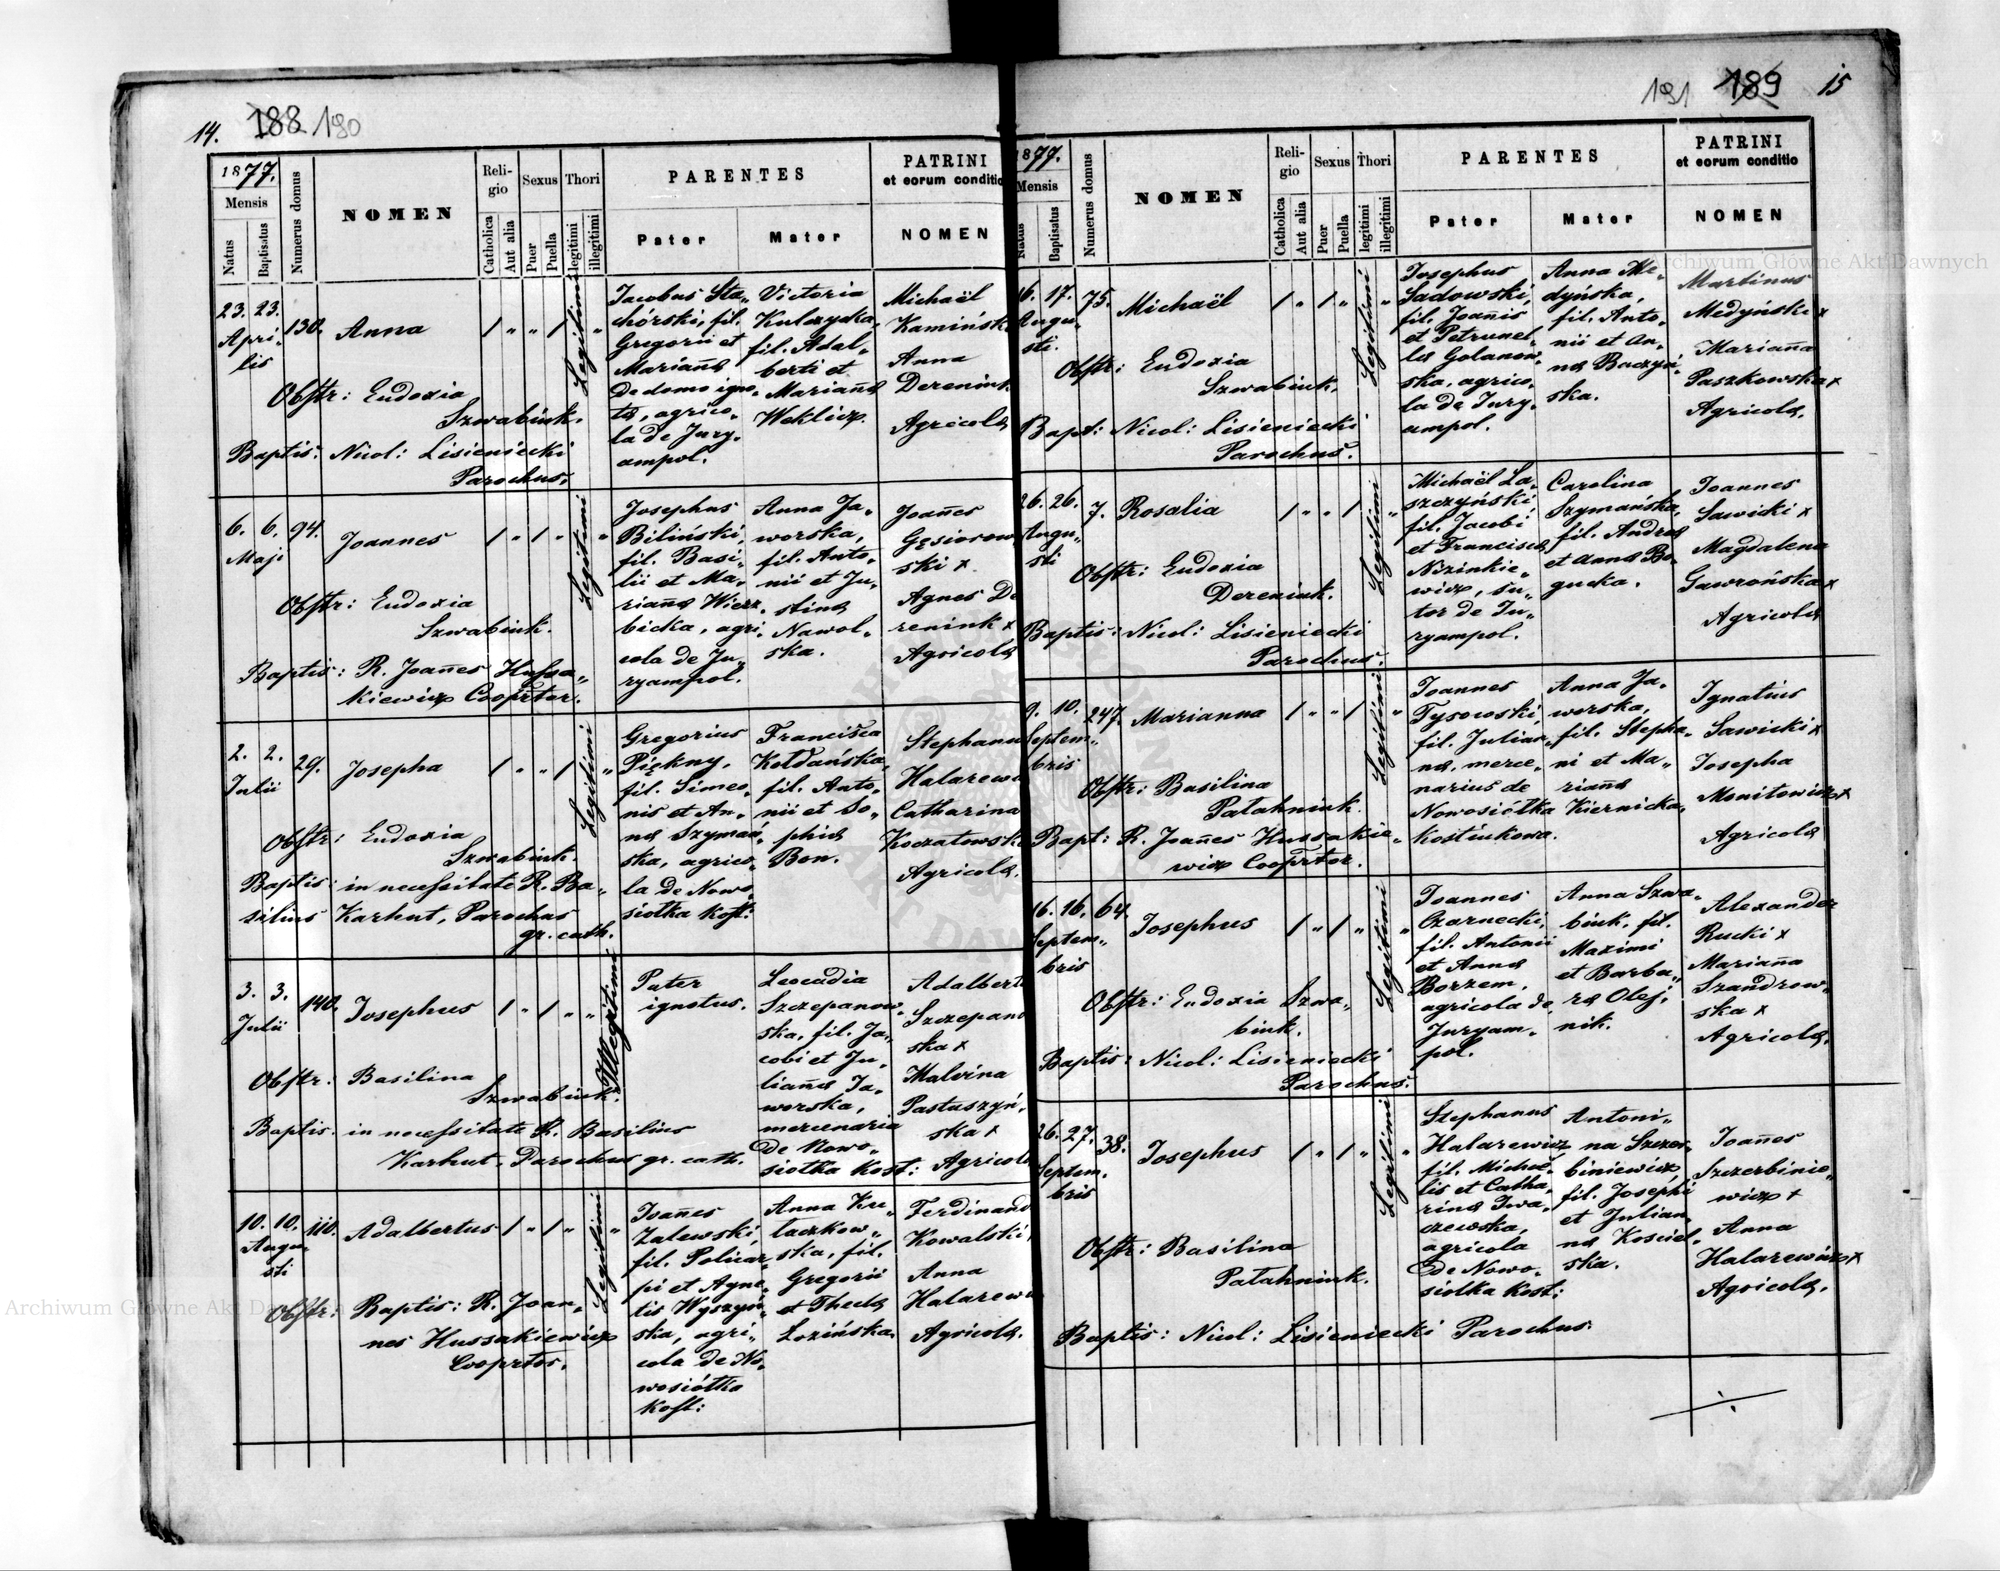 14. 188 190
1877.
Mensis
Natus
Baptisatus
Numerus domus
NOMEN
Religio
Catholica
Aut alia
Sexus
Puer
Puella
Thori
legitimi
illegitimi
PARENTES
Pater
Mater
PATRINI
et eorum conditio
NOMEN
23. 23.
Apri-
lis
130.
Anna
Legitimi
Obstr: Eudoxia
Szwabiuk.
Baptis: Nicol: Lisieniecki
Parochus.
Jacobus Sta„
chórski, fil.
Gregorii et
Mariañæ
de domo igno„
tæ, agrico„
la de Jury„
ampol.
Victoria
Kulczycka,
fil. Adal„
berti et
Mariañæ
Weklicz.
Michaël
Kamińsk
Anna
Dereniuk
Agricolæ
6. 6.
Maji
94.
Joannes
Legitimi
Obstr: Eudoxia
Szwabiuk.
Baptis: R. Joañes Hussa„
kiewicz Cooprtor.
Josephus
Biliński,
fil. Basi„
lii et Ma„
riañæ Wierz„
bicka, agri„
cola de Ju„
ryampol.
Anna Ja„
worska,
fil. Anto„
nii et Ju„
stinæ
Nawol„
ska.
Joañes
Gąsiorow
ski x
Agnes De
reniuk x
Agricolæ
2. 2.
Julii
29.
Josepha
Legitimi
Obstr: Eudoxia
Szwabiuk.
Baptis: in necessitate R. Ba„
silius Karhut, Parochus
gr. cath.
Gregorius
Piękny,
fil. Simeo„
nis et An„
næ Szymań„
ska, agrico„
la de Nowo
siołka Kost:
Francisca
Kołdańska,
fil. Anto„
nii et So„
phiæ
Bon.
Stephanu
Halarewi
Catharina
Koczatowska
Agricolæ.
3. 3.
Julii
140.
Josephus
Illegitimi
Obstr: Basilina
Szwabiuk.
Baptis. in necessitate R. Basilius
Karhut, Parochus gr. cath.
Pater
ignotus.
Leocadia
Szczepanow„
ska, fil. Ja„
cobi et Ju„
liañæ Ja„
worska,
mercenaria
de Nowo„
siołka Kost:
Adalbert
Szczepano
ska x
Malvina
Pastuszyń„
ska x
Agricolæ
10. 10.
Augu„
sti
110.
Adalbertus
Legitimi
Obstr:
Baptis: R. Joan„
nes Hussakiewicz
Cooprtor.
Joañes
Zalewski,
fil. Policar„
pi et Agne„
tis Wyszyń„
ska, agri„
cola de No„
wosiółka
Kost:
Anna Ku„
laczkow„
ska, fil.
Gregorii
et Theclæ
Łozińska.
Ferdinand
Kowalski,
Anna
Halarewi
Agricolæ.
191 189 15
1877.
Mensis
Natus
Baptisatus
Numerus domus
NOMEN
Religio
Catholica
Aut alia
Sexus
Puer
Puella
Thori
legitimi
illegitimi
PARENTES
Pater
Mater
PATRINI
et eorum conditio
NOMEN
16. 17.
Augu„
sti.
75.
Michaël
Legitimi
Obstr: Eudoxia
Szwabiuk.
Bapt: Nicol: Lisieniecki
Parochus.
Josephus
Sadowski,
fil. Joañis
et Petronel„
læ Golanow„
ska, agrico„
la de Jury„
ampol.
Anna Me„
dyńska,
fil. Anto„
nii et An„
næ Buczyń„
ska.
Martinus
Medyński x
Mariaña
Paszkowska x
Agricolæ.
26. 26.
Augu„
sti
7.
Rosalia
Legitimi
Obstr: Eudoxia
Dereniuk.
Baptis: Nicol: Lisieniecki
Parochus.
Michaël La„
szczyński
fil. Jacobi
et Franciscæ
Nizinkie„
wicz, su„
tor de Ju„
ryampol.
Carolina
Szymańska,
fil. Andreæ
et Annæ Bo„
gucka.
Joannes
Sawicki x
Magdalena
Gawrońska x
Agricolæ
9. 10.
Septem„
bris
247.
Marianna
Legitimi
Obstr: Basilina
Patahniuk.
Bapt: R. Joañes Hussakie„
wicz Cooprtor.
Joannes
Tysowski,
fil. Julian„
næ, merce„
narius de
Nowosiółka
Kostiukowa.
Anna Ja„
worska,
fil. Stepha„
ni et Ma„
riañæ
Kiernicka.
Ignatius
Sawicki x
Josepha
Monitowicz x
Agricolæ
16. 16.
Septem„
bris
64.
Josephus
Legitimi
Obstr: Eudoxia Szwa„
biuk.
Baptis: Nicol: Lisieniecki
Parochus.
Joannes
Czarnecki,
fil. Antonii
et Annæ
Borzem,
agricola de
Juryam„
pol.
Anna Szwa„
biuk, fil.
Maximi
et Barba„
ræ Olej„
nik.
Alexander
Rucki x
Mariaña
Szandrow„
ska x
Agricolæ.
26. 27.
Septem„
bris
38.
Josephus
Legitimi
Obstr: Basilina
Patahniuk.
Baptis: Nicol: Lisieniecki Parochus.
Stephanus
Halarewicz
fil. Michaë„
lis et Catha„
rinæ Iwa„
czewska,
agricola
de Nowo„
siolka Kost:
Antoni„
na Szczer„
biniewicz
fil. Josephi
et Julian„
næ Kosciel„
ska.
Joañes
Szczerbinie„
wicz +
Anna
Halarewicz x
Agricolæ.
Archiwum Główne Akt Dawnych
Archiwum Główne Akt Dawnych